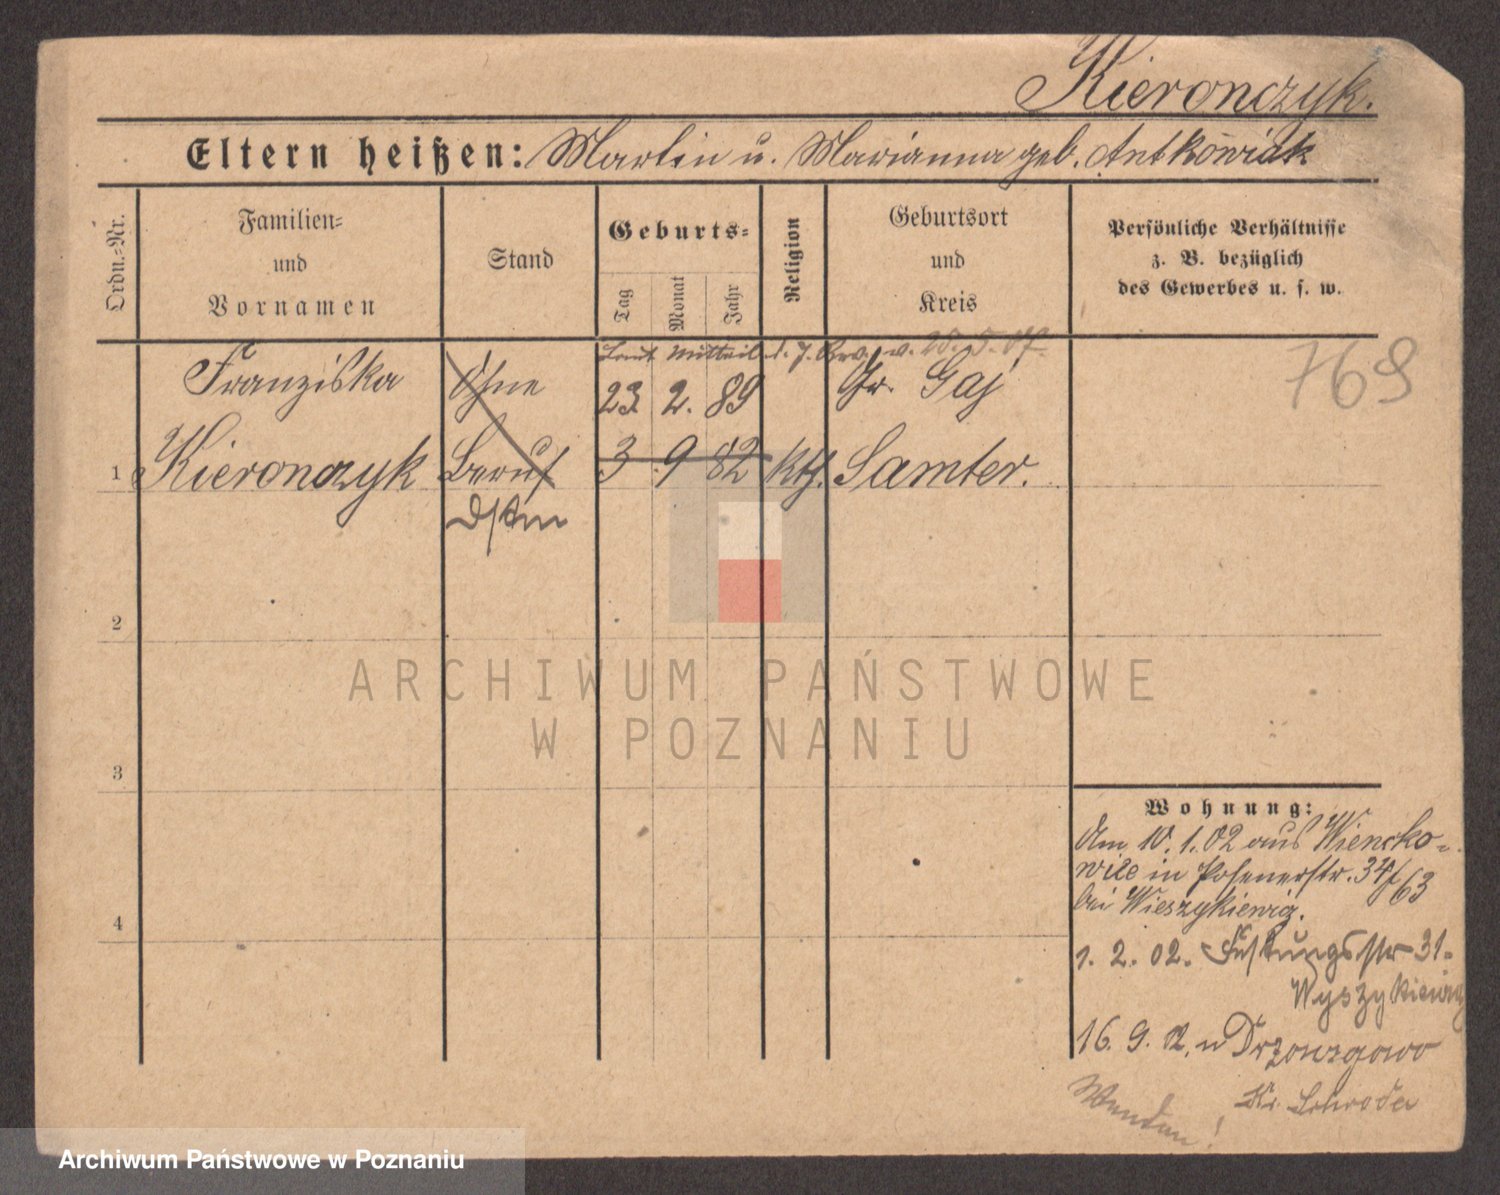 Kieronczyk.
Eltern heißen: Martin u. Marianna geb. Antkowiak
Ordn.-Nr.
Familien-
und
Vornamen
Stand
Geburts-
Tag
Monat
Jahr
Religion
Geburtsort
und
Kreis
Persönliche Verhältnisse
z. B. bezüglich
des Gewerbes u. s. w.
Laut Mitteil. d. v. 20.5.07.
768
Franziska Ohne 23. 2. 89 Gr. Gaj
1 Kieronczyk Beruf 3 9 82 Kth. Samter.
2
3
4
ARCHIWUM PAŃSTWOWE
W POZNANIU
Wohnung:
Am 10.1.02 aus Wiencko-
wice in Posenerstr. 34/63
bei Wieszykiewicz.
1. 2. 02. Festungsstr 31-
Wyszykiewicz
16. 9. 02. n Drzonzgowo
Kr. Schroda
Wenden!
Archiwum Państwowe w Poznaniu